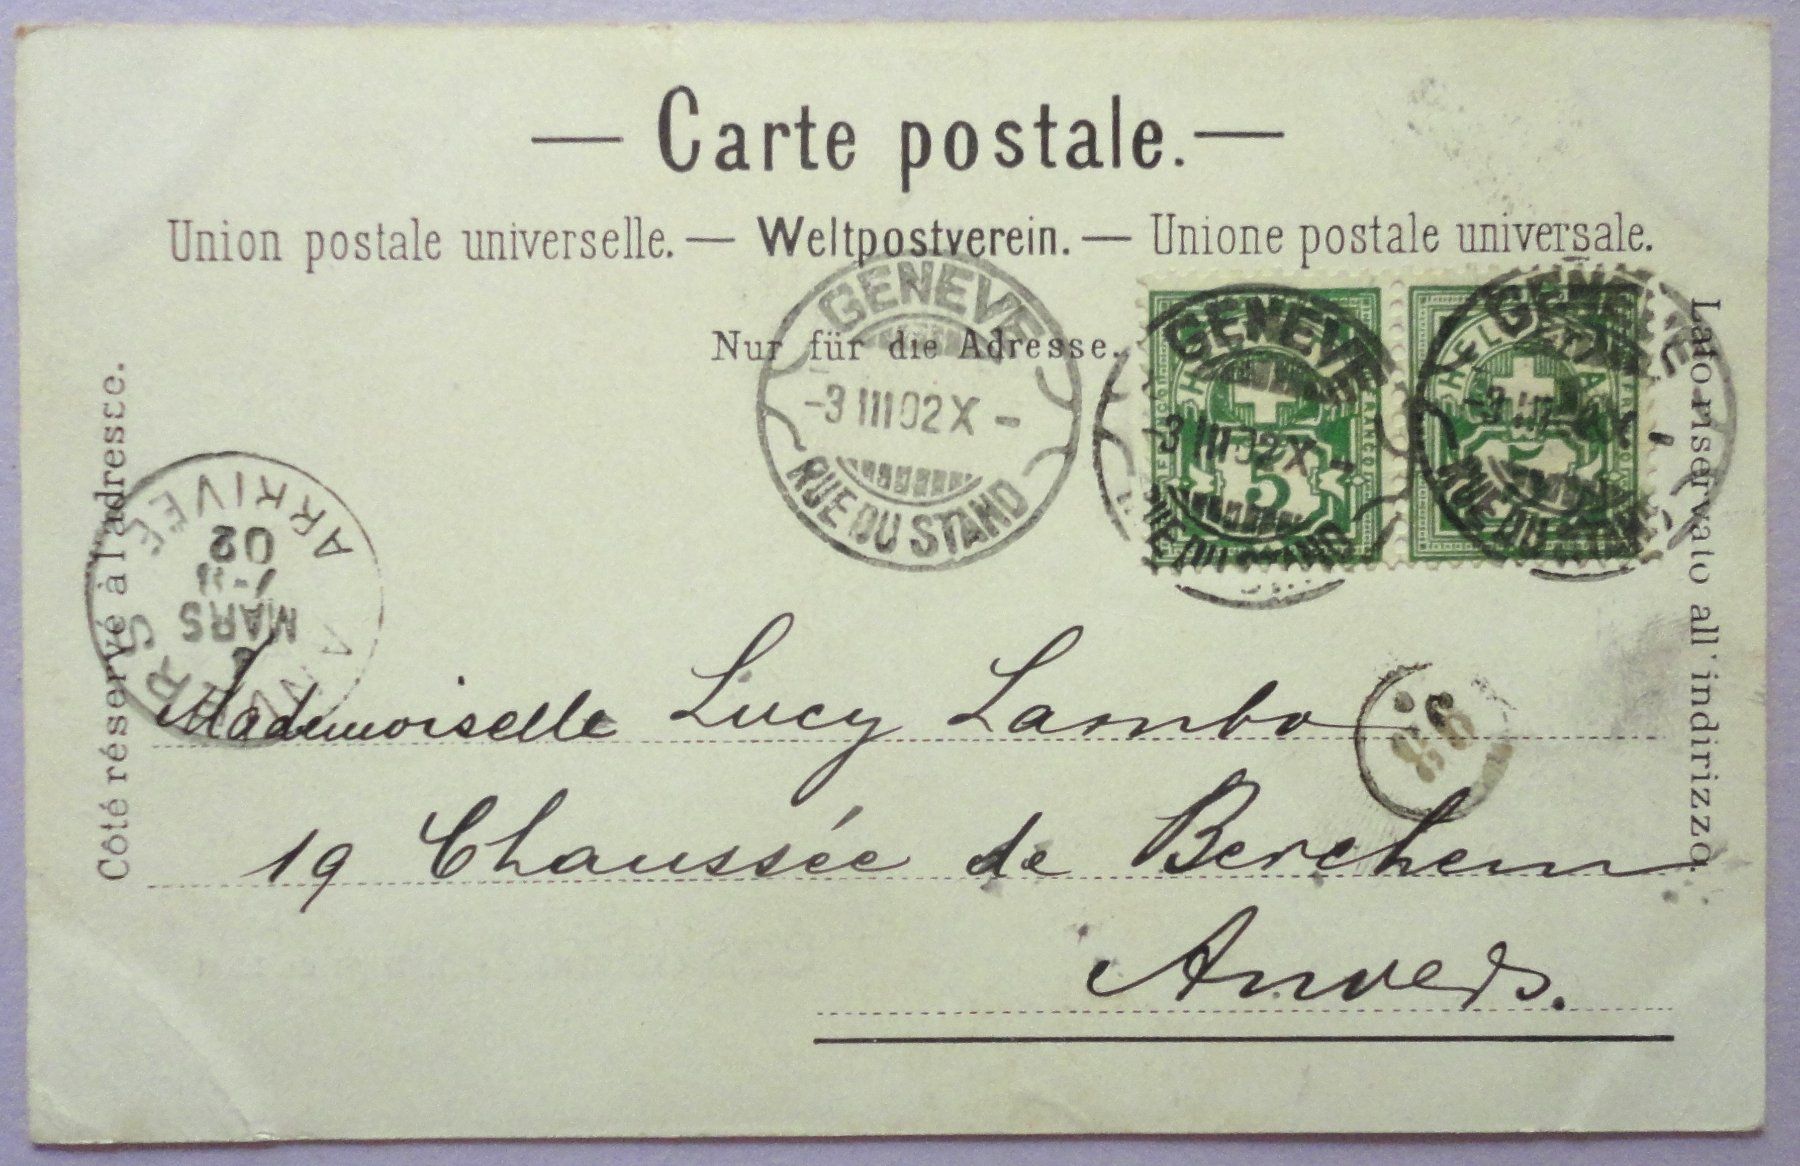 — Carte postale. —
Union postale universelle. — Weltpostverein. — Unione postale universale.
Nur für die Adresse.
Côté réservé à l'adresse.
Lato riservato all'indirizzo.
GENEVE
-3 III 02 X -
RUE DU STAND
GENEVE
-3 III 02 X -
RUE DU STAND
HELVETIA
FRANCO
5
GENEVE
RUE DU STAND
HELVETIA
FRANCO
5
ANVERS
MARS
02
ARRIVEE
Mademoiselle Lucy Lambo
19 Chaussée de Berchem
Anvers.